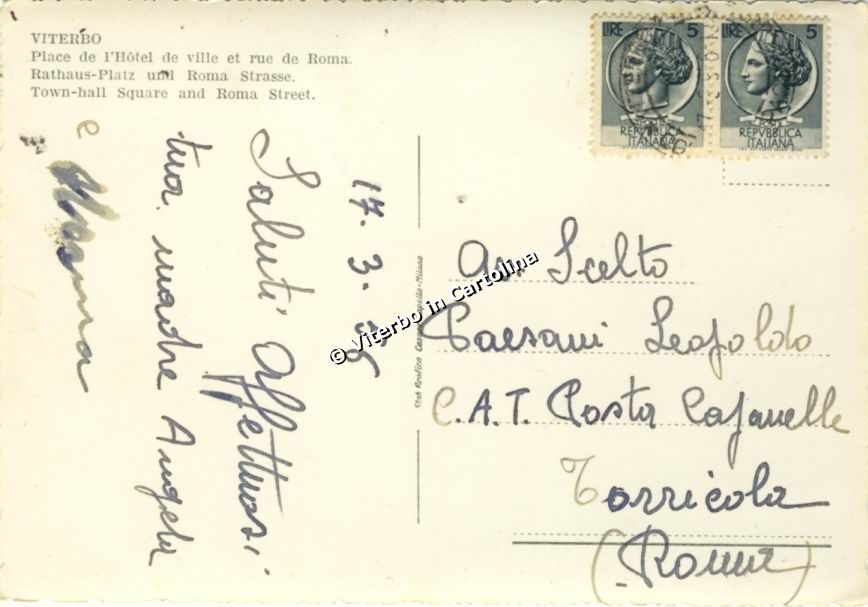 VITERBO
Place de l'Hôtel de ville et rue de Roma.
Rathaus-Platz und Roma Strasse.
Town-hall Square and Roma Street.
LIRE 5
REPVBBLICA
ITALIANA
LIRE 5
REPVBBLICA
ITALIANA
17. 3.
Saluti affettuosi
tua madre Angela
e
© Viterbo in Cartolina
Av. Scelto
Paesani Leopoldo
C.A.T. Posta Cafanelle
Torricola
(Roma)